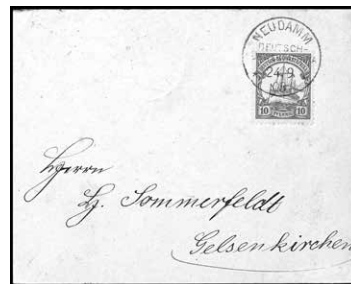 NEUDAMM
DEUTSCH-
24 9
10 10
Herrn
H. Sommerfeldt
Gelsenkirchen